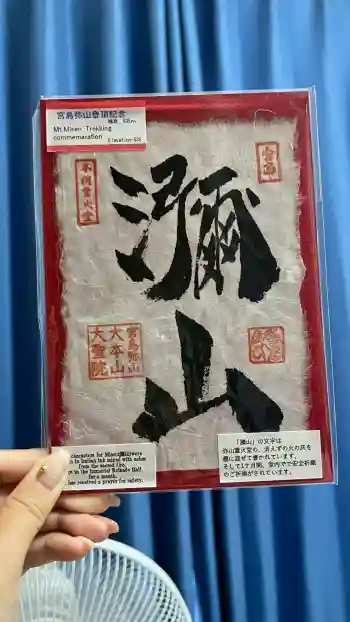 宮島弥山登頂記念
標高 535m
Mt.Misen Trekking
commemaration
Elevation 535
宮島
不消霊火堂
瀰
山
宮島弥山
大本山
大聖院
characters for Misen
in Indian ink mixed with ashes
from the sacred fire.
in the Immortal Reikado Hall
for a month.
has received a prayer for safety.
「瀰山」の文字は
弥山霊火堂の、消えずの火の灰を
墨に混ぜて書かれています。
そして1ケ月間、堂内でで安全祈願
のご祈祷がされています。